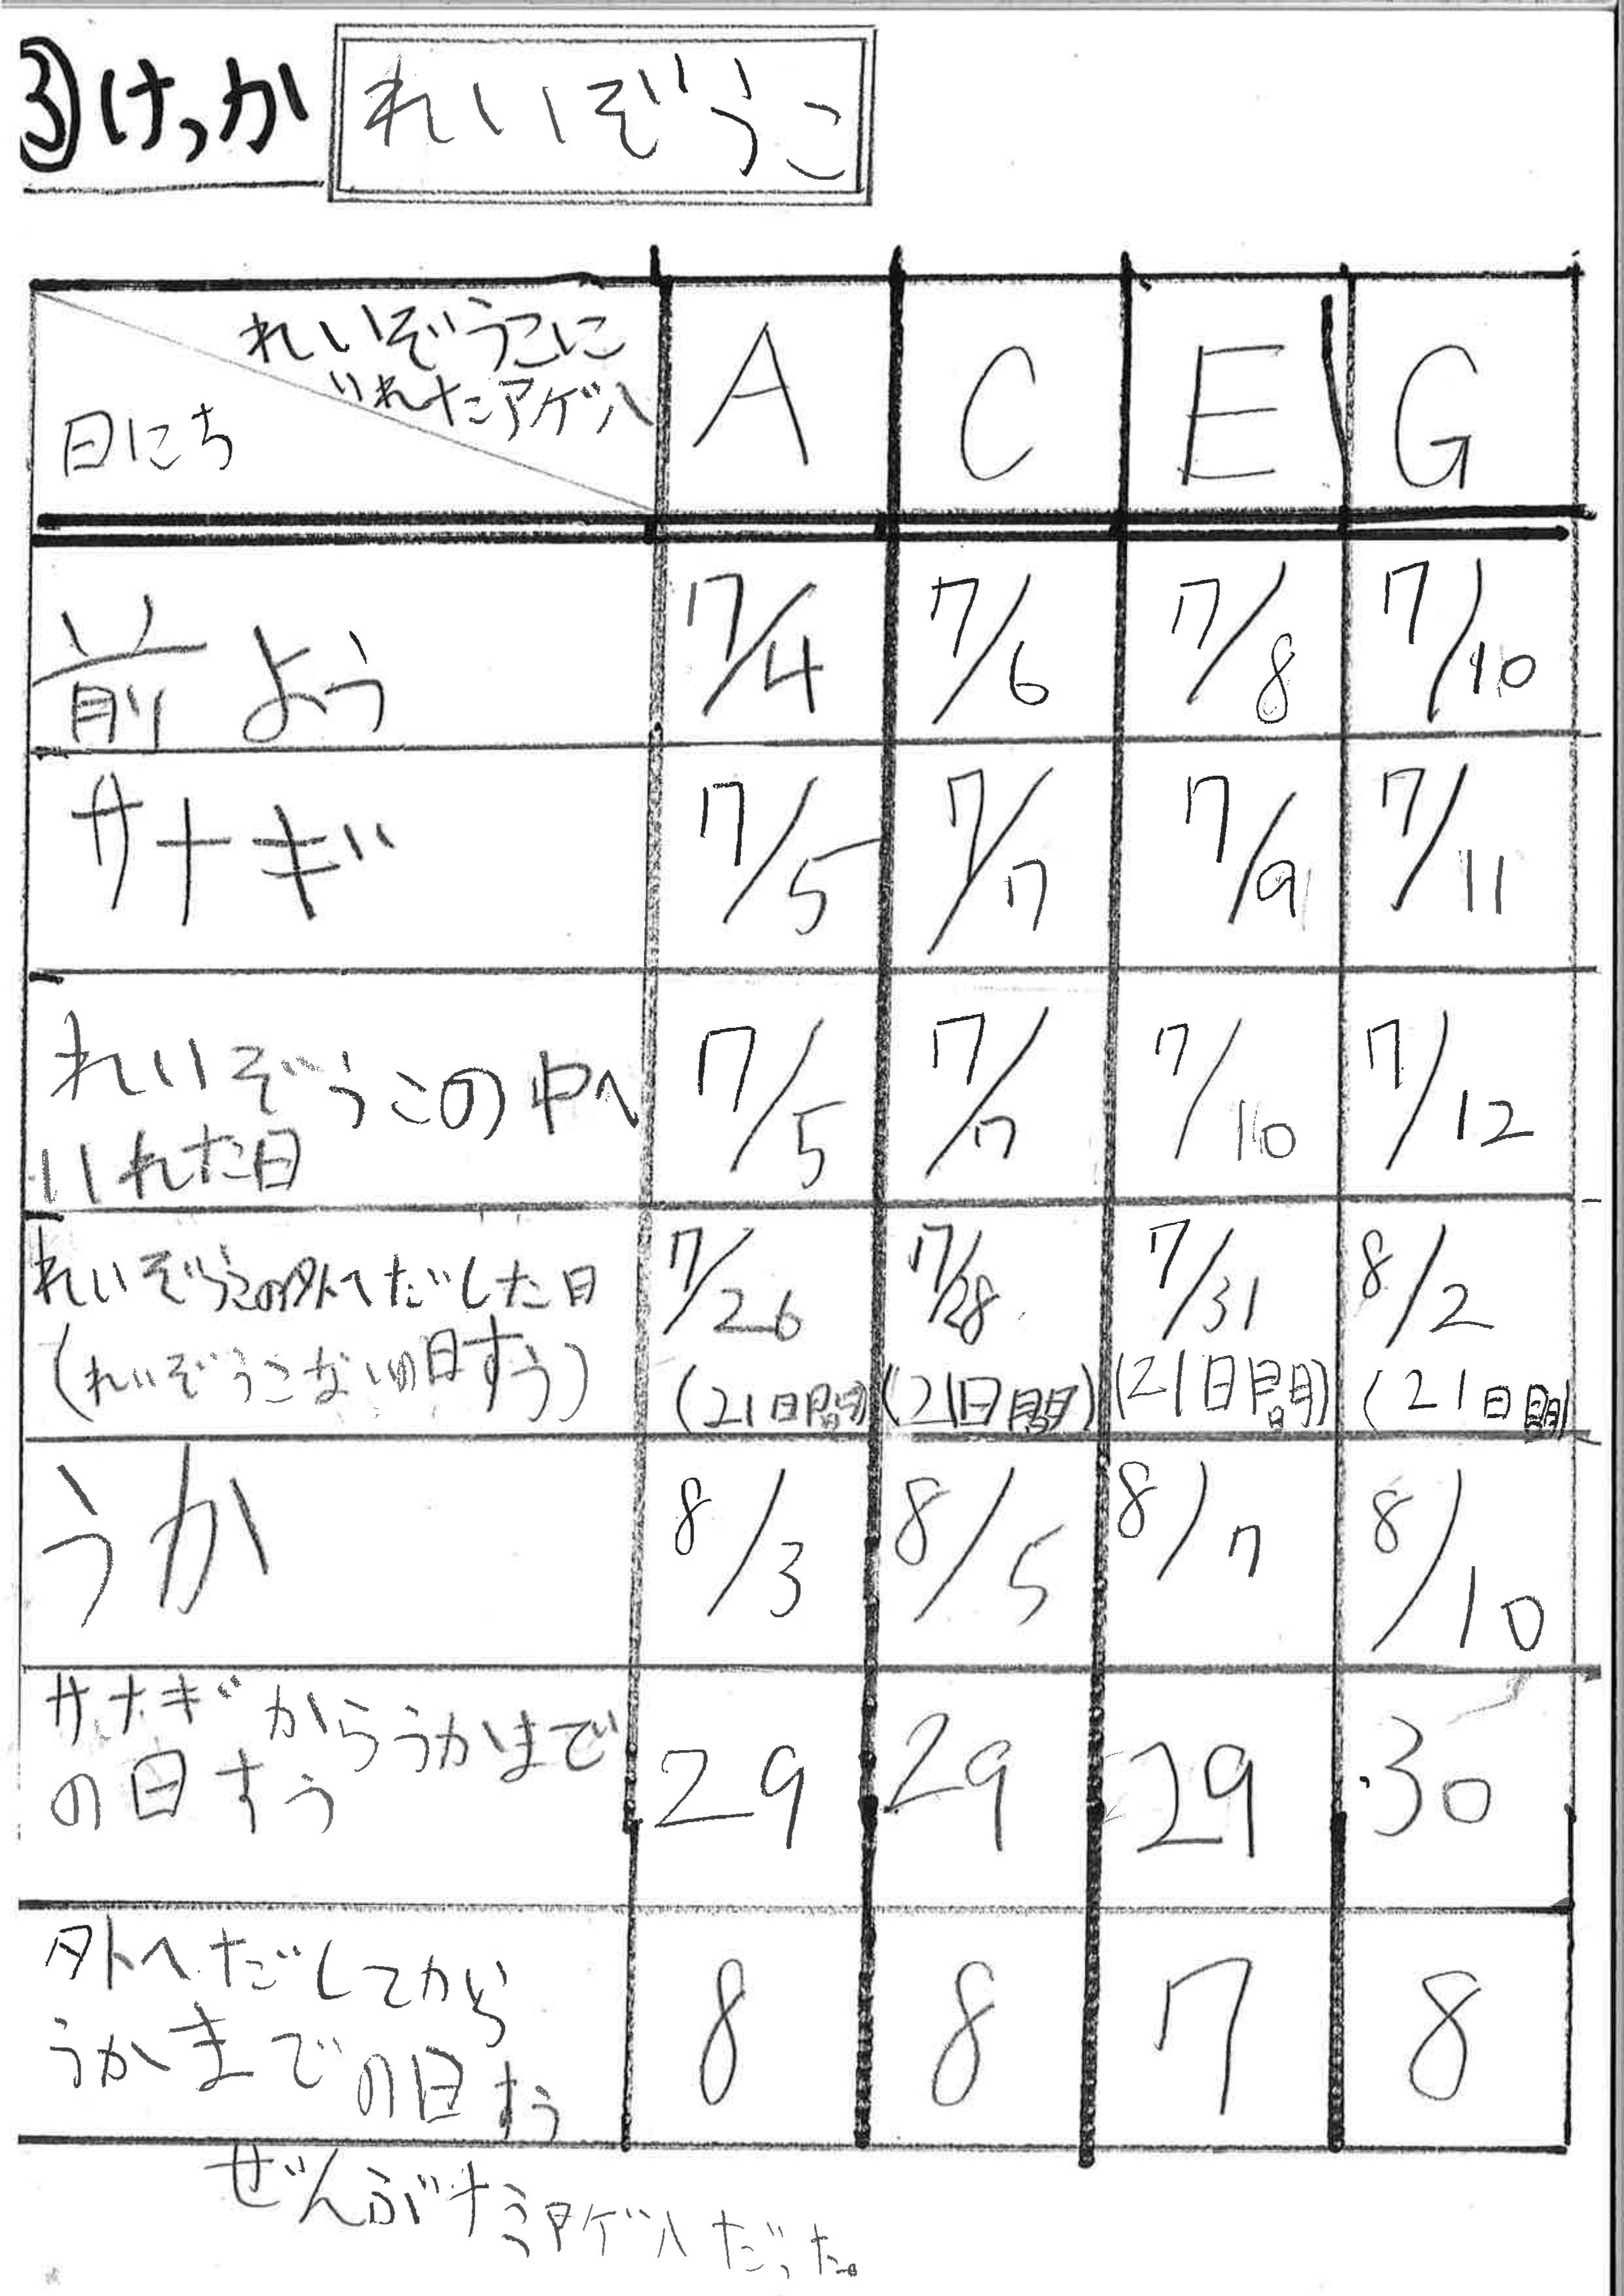 ③けっか れいぞうこ
れいぞうこに
いれたアゲハ
日にち A C E G
前よう 7/4 7/6 7/8 7/10
サナギ 7/5 7/7 7/9 7/11
れいぞうこの中へ
いれた日 7/5 7/7 7/10 7/12
れいぞうこの外へだした日 7/26 7/28 7/31 8/2
(れいぞうこないの日すう) (21日間) (21日間) (21日間) (21日間)
うか 8/3 8/5 8/7 8/10
サナギからうかまで
の日すう 29 29 29 30
外へだしてから
うかまでの日すう 8 8 7 8
ぜんぶナミアゲハだった。